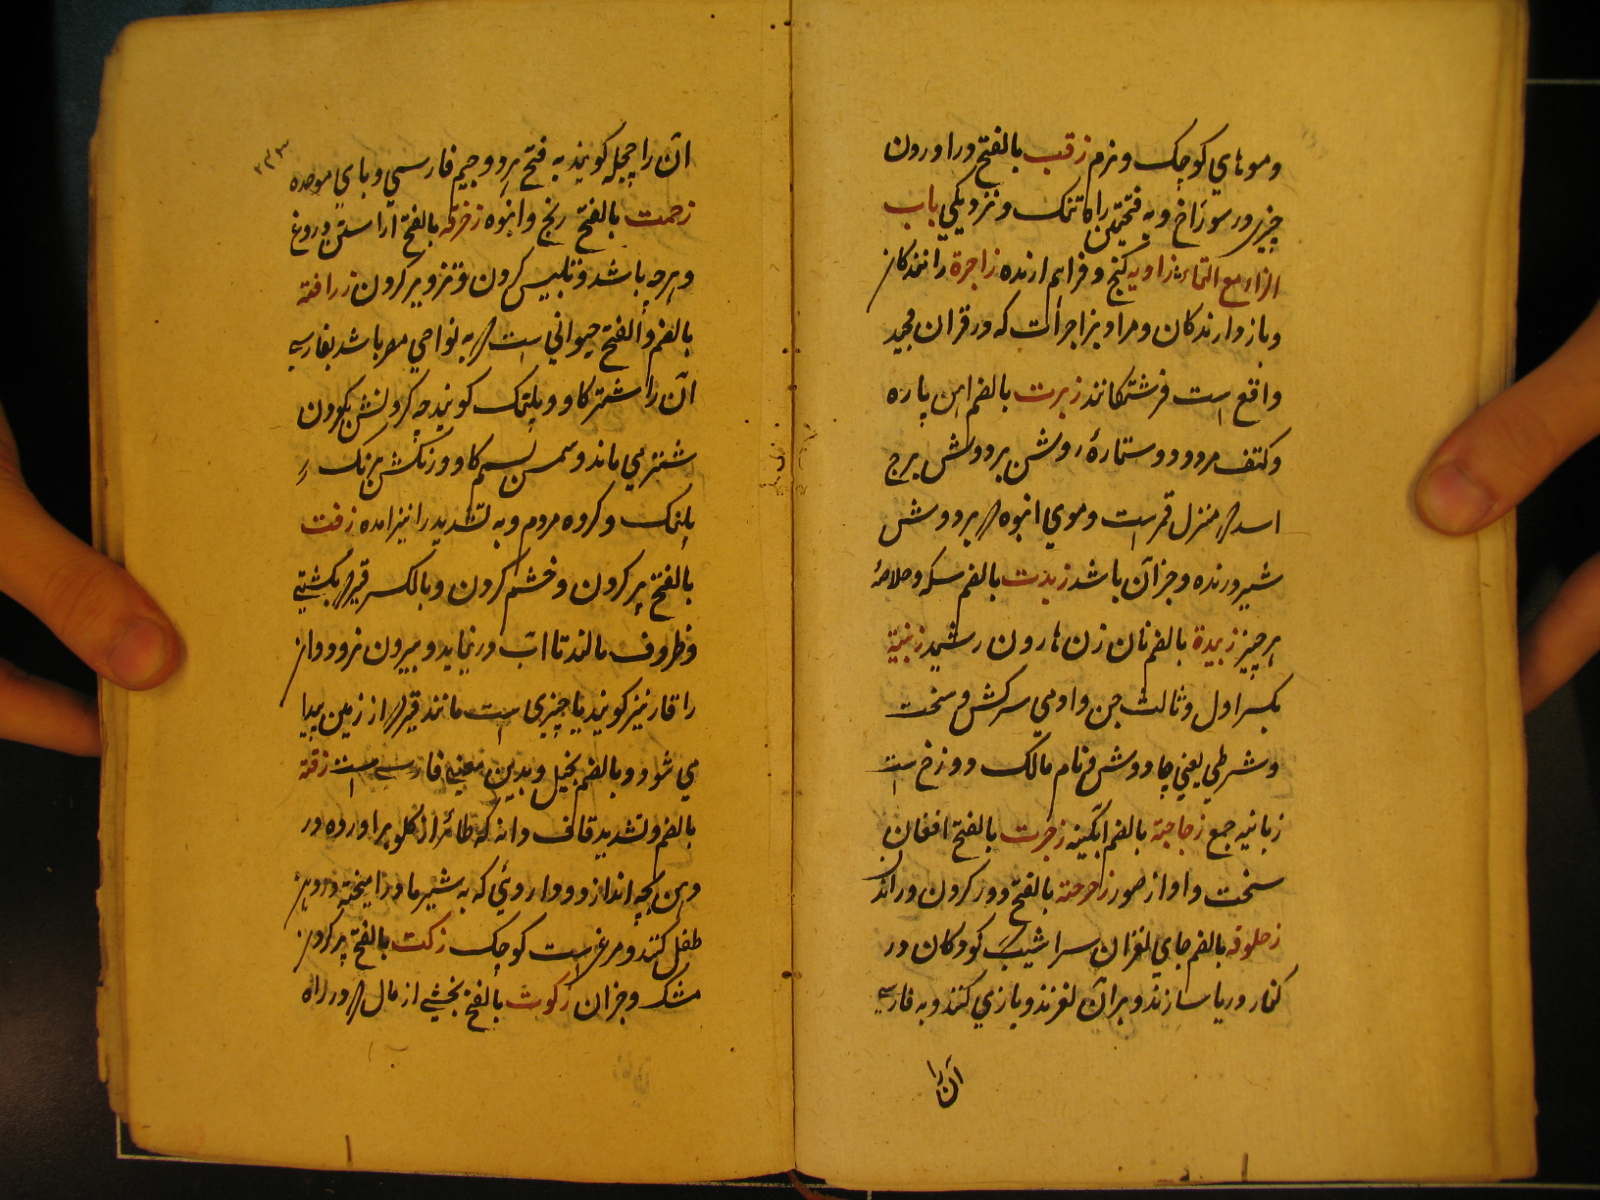 و موهاي کوچک و نرم زقب بالفتح در اوردن
چيزي در سوراخ و به فتحتين راه تنک و نزديکي باب
الزاء مع التاء زاويه کنج و فراهم ارنده زاجرة رانندکان
و بازدارندکان و مراد بزاجرات که در قران مجيد
واقع است فرشتکانند زبرت بالضم اهن پاره
و کتف مرد و دو ستارۀ روشن بر دوش برج
اسد منزل قمر است و موي انبوه بر دوش
شير درنده و جز ان باشد زبدت بالضم مسکه و خلاصۀ
هر چيز زبيدة بالضم نان زن هارون رشيد زبنية
بکسر اول و ثالث جن و ادمي سرکش و سخت
و شرطي يعني چاووش و نام مالک دوزخ است
زبانيه جمع زجاجة بالضم ابکينه زجرت بالفتح افغان
سخت و اواز صور زحزحة بالفتح دور کردن و راند
زحلوقه بالضم جاي لغزان سراشيب کودکان در
کنار دريا سازند و بر ان لغزند و بازي کنند و به فارسي
آن را
۲۳۳
ان را چچله کويند به فتح هر دو جيم فارسي و باي موحده
زحمت بالفتح رنج و انبوه زخرفه بالفتح اراستن دروغ
و هرچه باشد و تلبيس کردن و تزوير کردن زرافته
بالضم و الفتح حيواني است به نواحي مصر باشد بفارسي
ان را شتر کاو و پلنک کويند چه کردنش بکردن
شتر مي ماند و سمش بسم کاو و رنکش برنک
پلنک و کروه مردم و به تشديد را نيز امده زفت
بالفتح پر کردن و خشم کردن و بالکسر قير بکشتي
و ظروف مالند تا اب در نيايد و بيرون نرود و از
را قار نيز کويند يا چيزي است مانند قير از زمين پيدا
مي شود و بالضم بخيل و بدين معني فارسي است زقة
بالضم و تشديد قاف دانه که طائر از کلو براورده در
دهن بچه اندازد و داروئي که به شير مادر اميخته در دهن
طفل کنند و مرغيست کوچک زکت بالفتح پر کردن
مشک و جز ان زکوت بالفتح بخشي از مال در راه